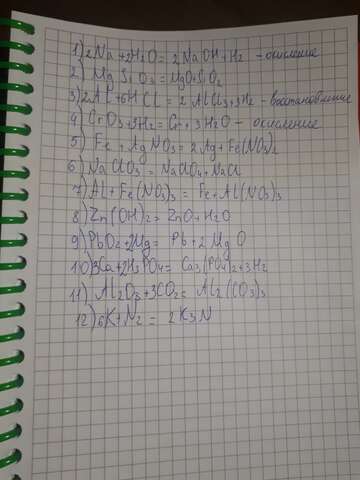 1) 2Na + 2H2O = 2NaOH + H2 - окисление
2) MgSiO3 = MgO + SiO2
3) 2Al + 6HCl = 2AlCl3 + 3H2 - восстановление
4) CrO3 + 3H2 = Cr + 3H2O - окисление
5) Fe + AgNO3 = 2Ag + Fe(NO3)2
6) NaClO3 = NaClO4 + NaCl
7) Al + Fe(NO3)3 = Fe + Al(NO3)3
8) Zn(OH)2 = ZnO + H2O
9) PbO2 + 2Mg = Pb + 2MgO
10) 3Ca + 2H3PO4 = Ca3(PO4)2 + 3H2
11) Al2O3 + 3CO2 = Al2(CO3)3
12) 6K + N2 = 2K3N